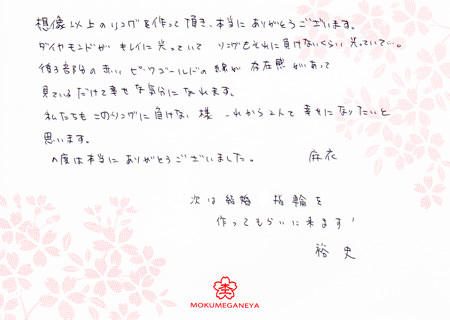 想像以上のリングを作って頂き、本当にありがとうございます。
ダイヤモンドがキレイに光っていて リングもそれに負けないくらい光っていて…。
後3部分の赤い ピンクゴールドの線が 存在感があって
見ているだけで幸せな気分になれます。
私たちもこのリングに負けない様 これから2人で幸せになりたいと
思います。
この度は本当にありがとうございました。 麻衣
次は結婚 指輪を
作ってもらいに来ます!
裕史
MOKUMEGANEYA